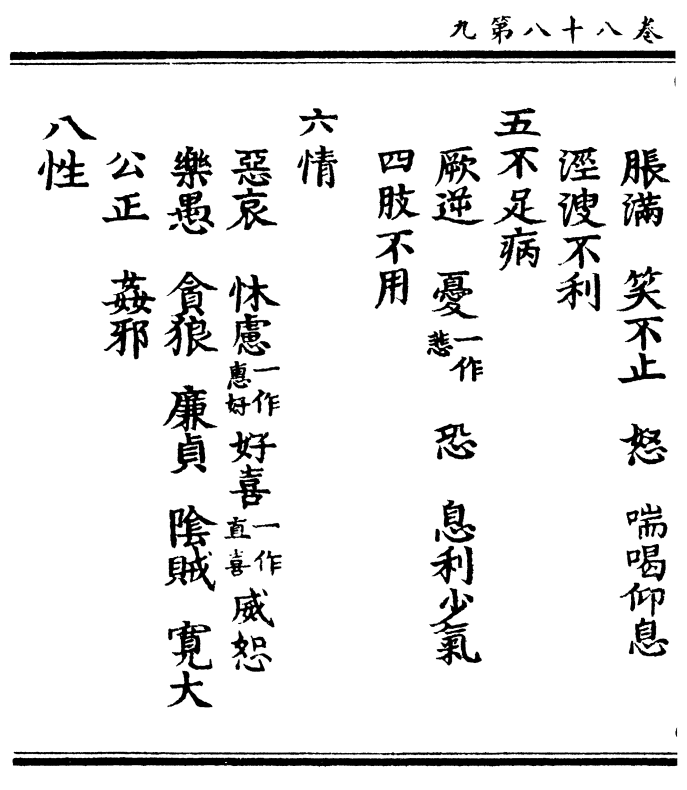 卷八十八第九
脹滿 笑不止 怒 喘喝仰息
涇溲不利
五不足病
厥逆 憂一作悲 恐 息利少氣
四肢不用
六情
惡哀 怵慮一作惠好 好喜一作直喜 威恕
樂愚 貪狼 廉貞 陰賊 寬大
公正 姦邪
八性